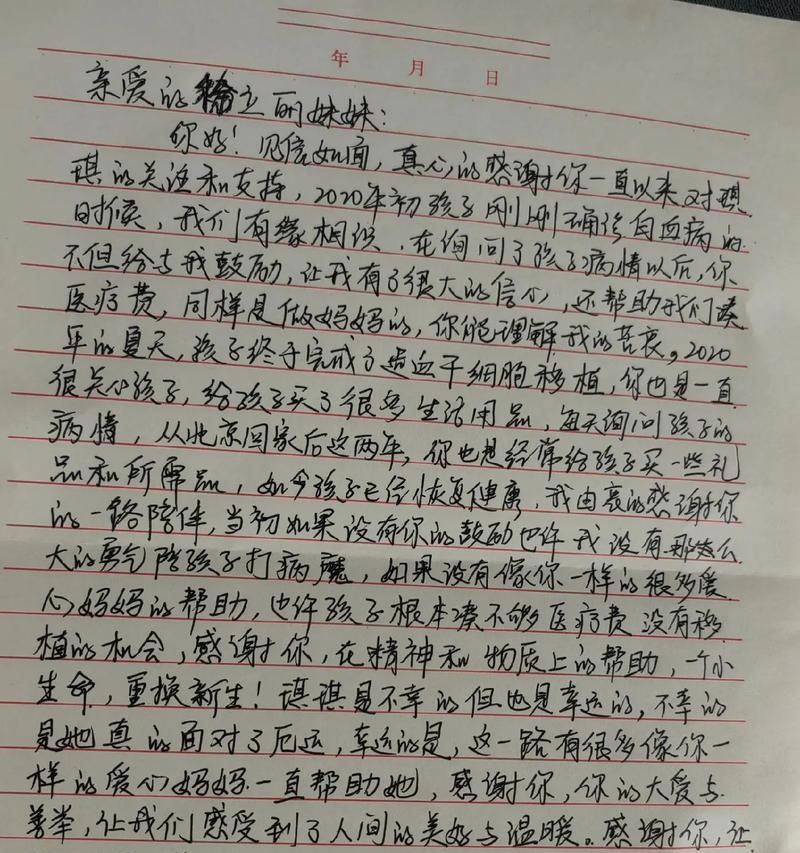 年 月 日
亲爱的 立丽妹妹：
你好！见信如面，真心的感谢你一直以来对琪
琪的关注和支持，2020年初孩子刚刚确诊白血病的
时候，我们有缘相识，在询问了孩子病情以后，你
不但给与我鼓励，让我有了很大的信心，还帮助我们凑
医疗费，同样是做妈妈的，你能理解我的苦衷。2020
年的夏天，孩子终于完成了造血干细胞移植，你也是一直
很关心孩子，给孩子买了很多生活用品，每天询问孩子的
病情，从北京回家后这两年，你也是经常给孩子买一些礼
品和所需品，如今孩子已经恢复健康，我由衷的感谢你
的一路陪伴，当初如果没有你的鼓励也许我没有那么
大的勇气陪孩子打病魔，如果没有像你一样的很多爱
心妈妈的帮助，也许孩子根本凑不够医疗费没有移
植的机会，感谢你，在精神和物质上的帮助，一个小
生命，重换新生！琪琪是不幸的但也是幸运的，不幸的
是她真的面对了厄运，幸运的是，这一路有很多像你一
样的爱心妈妈一直帮助她，感谢你，你的大爱与
善举，让我们感受到了人间的美好与温暖。感谢你，让